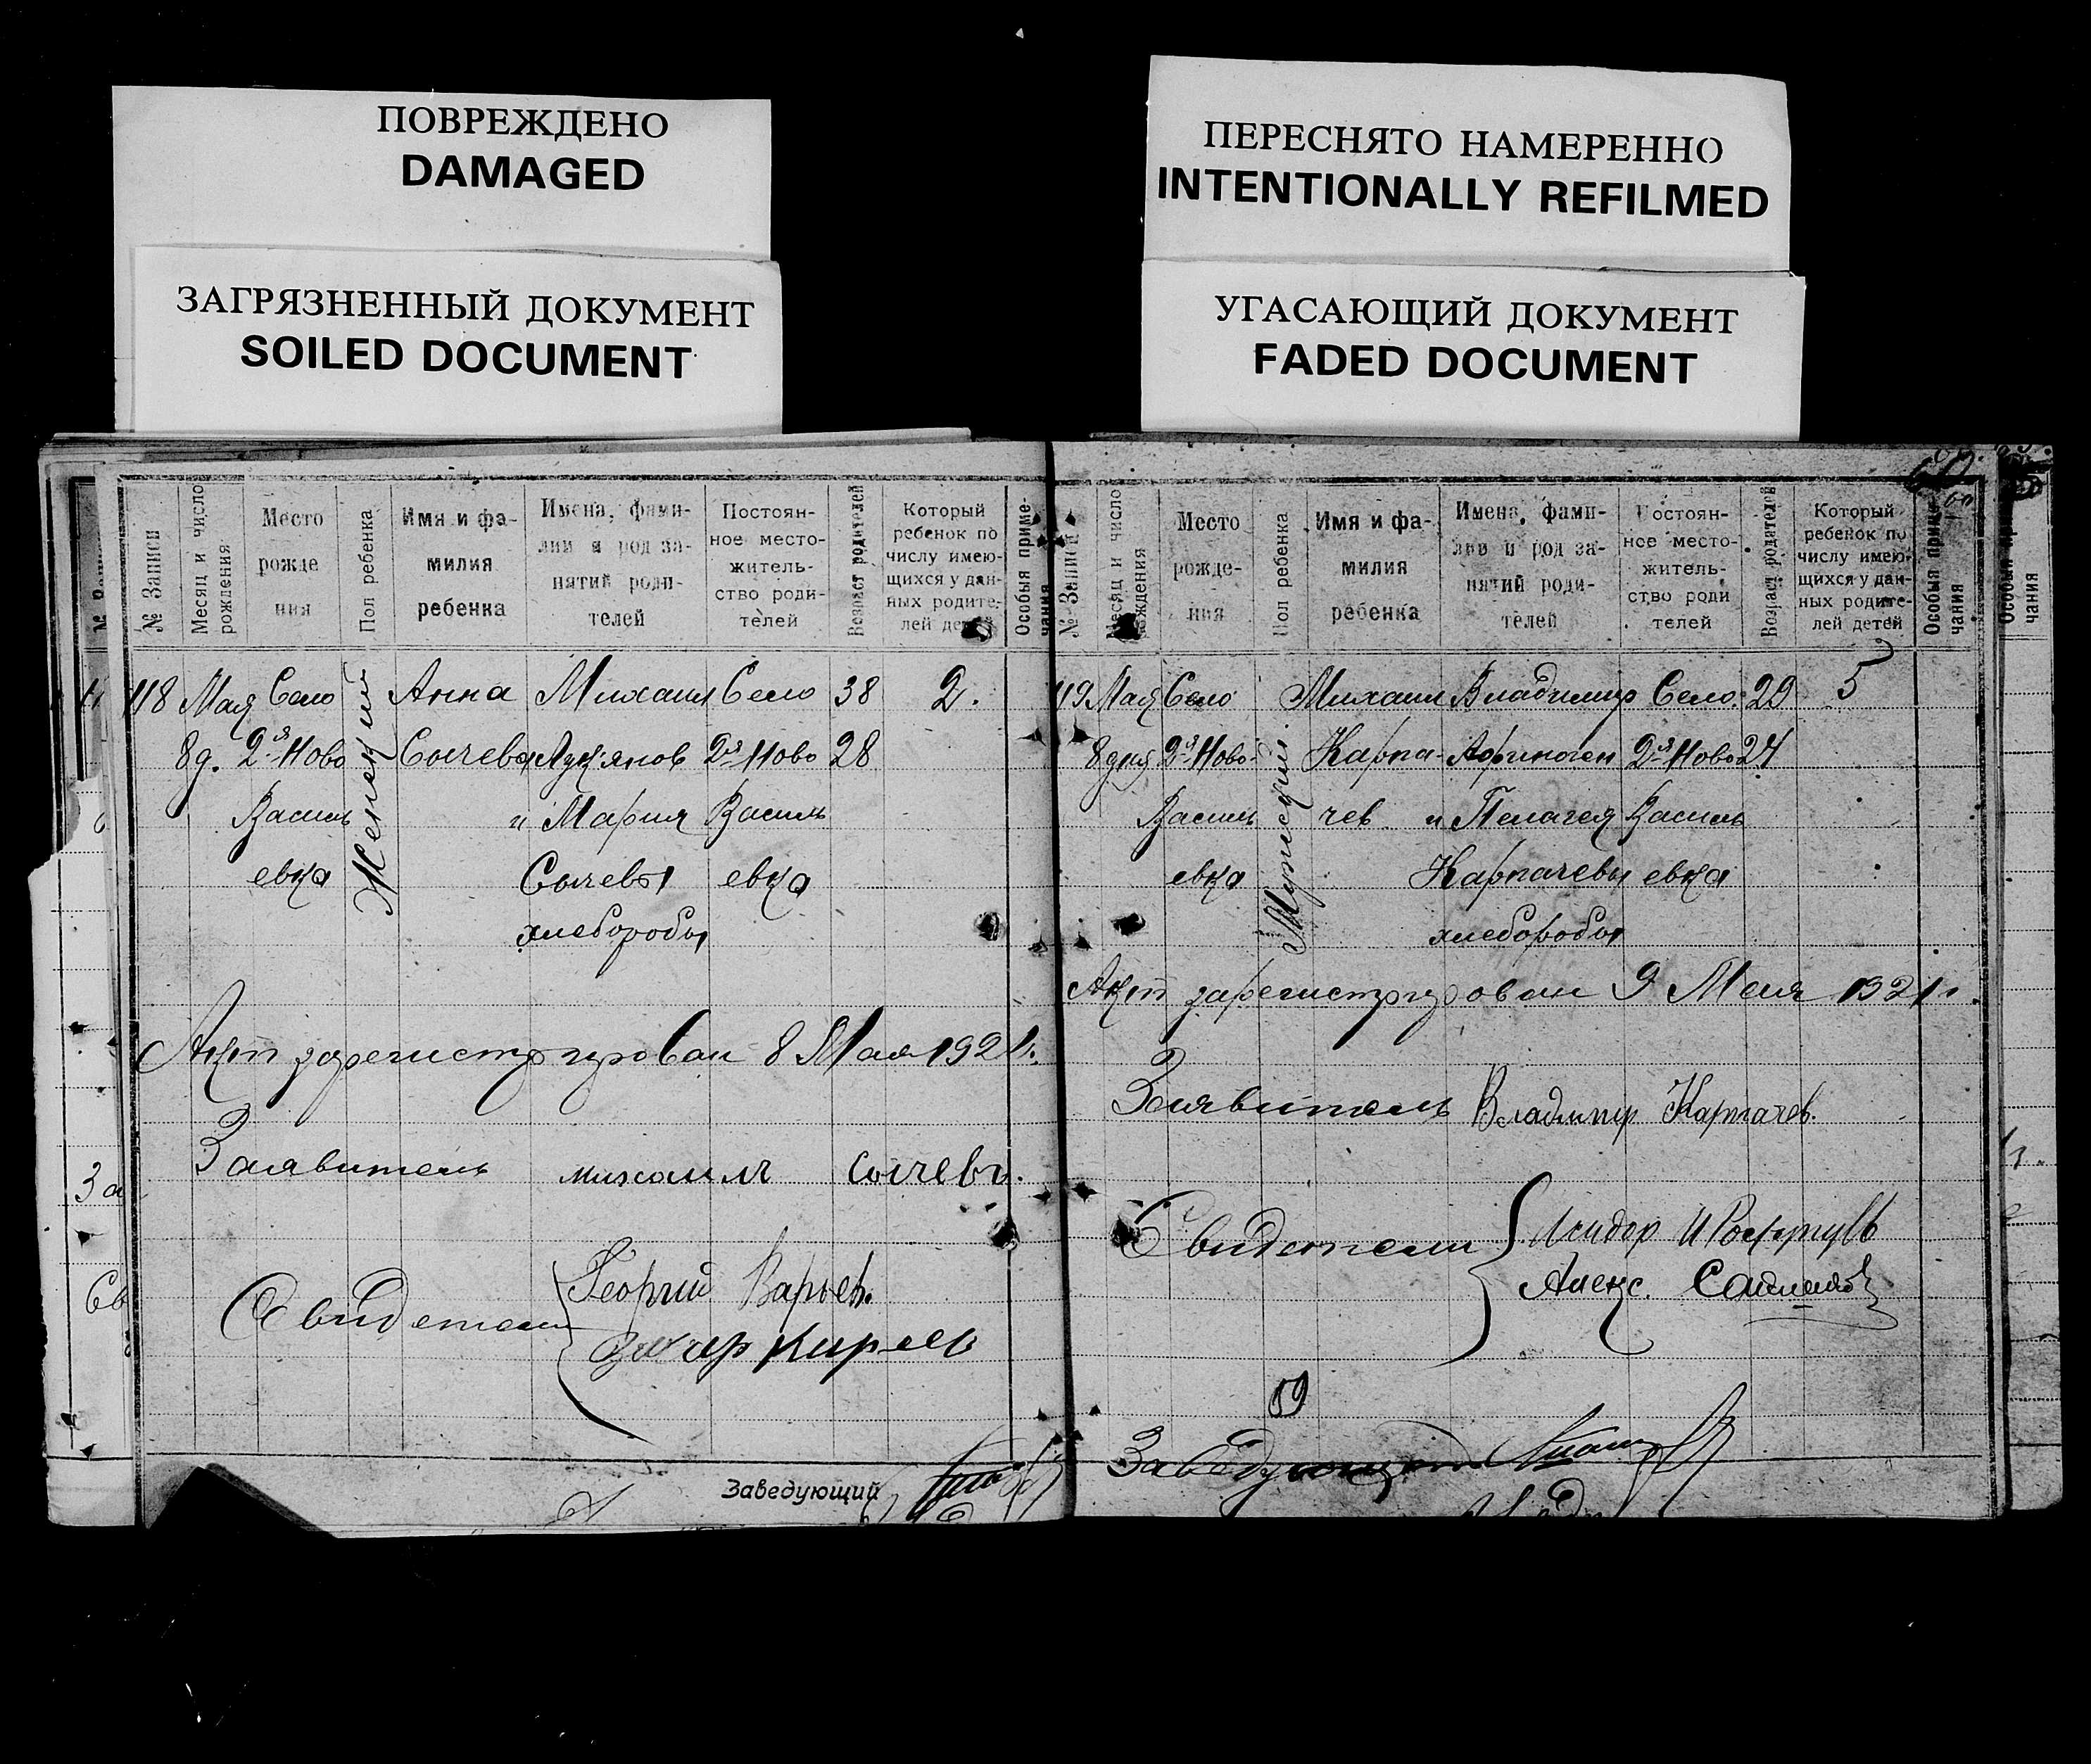 ПОВРЕЖДЕНО
DAMAGED
ЗАГРЯЗНЕННЫЙ ДОКУМЕНТ
SOILED DOCUMENT
ПЕРЕСНЯТО НАМЕРЕННО
INTENTIONALLY REFILMED
УГАСАЮЩИЙ ДОКУМЕНТ
FADED DOCUMENT
№ Записи
Месяц и число рождения
Место рождения
Пол ребенка
Имя и фамилия ребенка
Имена, фамилии и род занятий родителей
Постоянное местожительство родителей
Возраст родителей
Который ребенок по числу имеющихся у данных родителей детей
Особыя примечания
118 Мая Село Женский Анна Михаил Село 38 2.
8д. 2-я Ново Сычева Лукьянов 2-я Ново 28
Василь и Мария Василь
евка Сычевы евка
хлеборобы
Акт зарегистрирован 8 Мая 1921г.
Заявитель михаил сычевъ.
Свидетели Георгий
Захар Киреев
Заведующий
60
№ Записи
Месяц и число рождения
Место рождения
Пол ребенка
Имя и фамилия ребенка
Имена, фамилии и род занятий родителей
Постоянное местожительство родителей
Возраст родителей
Который ребенок по числу имеющихся у данных родителей детей
Особыя примечания
119 Мая Село Мужский Михаил Владимир Село 29 5
8 дня 2-я Ново- Карпа- Афиноген 2-я Ново 24
Василь чев и Пелагея Василь
евка Карпачевы евка
хлеборобы
Акт зарегистрирован 9 Мая 1921г.
Заявитель Владимир Карпачев.
Свидетели Исидор И
Алекс.
59
Заведующий